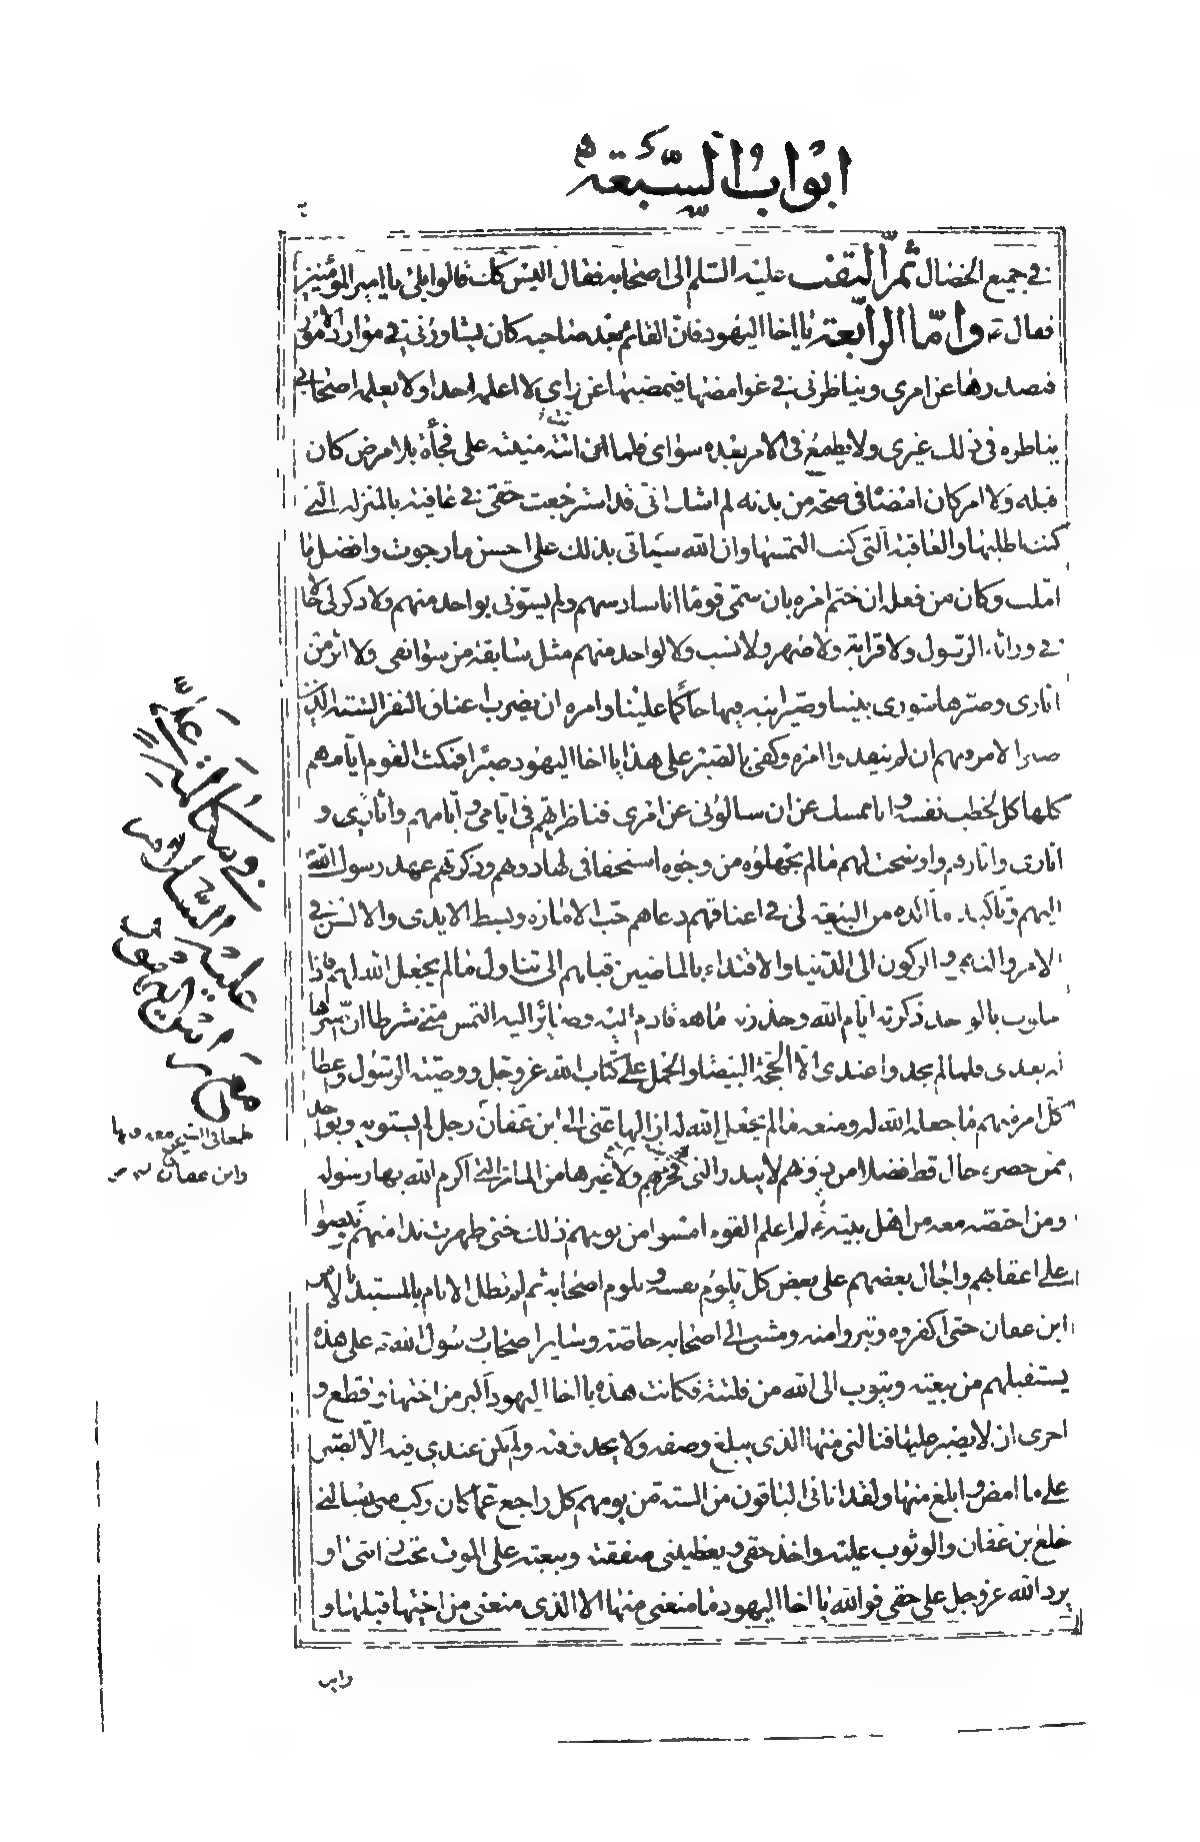 ابواب السبعة
في جميع الخصال ثم التفت عليه السلم الى اصحابه فقال اليس كذلك قالوا بلى يا امير المؤمنين
فقال ع واما الرابعة يا اخا اليهود فان القائم بعد صاحبه كان يشاورني في موارد الامور
فيصدرها عن امري ويناظرني في غوامضها فيمضيها عن رأي لا اعلم احدا ولا يعلم اصحابي
يناظره في ذلك غيري ولا يطمع في الامر بعده سواي فلما اتته منيته على فجأة بلا مرض كان
قبله ولا امر كان امضاه في صحة من بدنه لم اشك اني قد استرجعت حقي في عافية بالمنزلة التي
كنت اطلبها والعاقبة التي كنت التمسها وان الله سيأتي بذلك على احسن ما رجوت وافضل ما
املت وكان من فعله ان ختم امره بان سمى قوما انا سادسهم ولم يستوني بواحد منهم ولا ذكر لي حالا
في وراثة الرسول ولا قرابة ولا صهر ولا نسب ولا لواحد منهم مثل سابقة من سوابقي ولا اثر من
اثاري وصيرها شورى بيننا وصير ابنه فيها حاكما علينا وامره ان يضرب اعناق النفر الستة الذين
صير الامر فيهم ان لم ينفذوا امره وكفى بالصبر على هذا يا اخا اليهود صبرا فمكث القوم ايامهم
كلها كل يخطب لنفسه وانا ممسك عن ان سألوني عن امري فناظرتهم في ايامي وايامهم واثاري و
اثارهم واوضحت لهم ما لم يجهلوه من وجوه استحقاقي لها دونهم وذكرتهم عهد رسول الله
اليهم وتأكيد ما اكده من البيعة لي في اعناقهم دعاهم حب الامارة وبسط الايدي والالسن في
الامر والنهي والركون الى الدنيا والاقتداء بالماضين قبلهم الى تناول ما لم يجعل الله لهم فاذا
خلوت بالواحد ذكرته ايام الله وحذرته ما هو قادم اليه وصائر اليه التمس مني شرطا ان اصيرها
له بعدي فلما لم يجدوا عندي الا المحجة البيضاء والحمل على كتاب الله عز وجل ووصية الرسول واعطاء
كل امرء منهم ما جعله الله له ومنعه ما لم يجعل الله له ازالها عني الى ابن عفان رجل لم يستو به وبواحد
ممن حضره حال قط فضلا عمن دونهم لا ببدر التي هي سنام فخرهم ولا غيرها من المآثر التي اكرم الله بها رسوله
ومن اختصه معه من اهل بيته ع لم اعلم القوم امسوا من يومهم ذلك حتى ظهرت ندامتهم ونكصوا
على اعقابهم واحال بعضهم على بعض كل يلوم نفسه ويلوم اصحابه ثم لم تطل الايام بالمستبد بالامر
ابن عفان حتى اكفروه وتبرؤا منه ومشى الى اصحابه خاصة وساير اصحاب رسول الله على هذه
يستقيلهم من بيعته ويتوب الى الله من فلتته فكانت هذه يا اخا اليهود اكبر من اختها وافظع و
احرى ان لا يصبر عليها فنالني منها الذي يبلغ وصفه ولا يحد وقته ولم يكن عندي فيه الا الصبر
على ما امض وابلغ منها ولقد اتاني الباقون من الستة من يومهم كل راجع عما كان ركب مني يسألني
خلع بن عفان والوثوب عليه واخذ حقي ويعطيني صفقته وبيعته على الموت تحت رايتي او
يرد الله عز وجل علي حقي فوالله يا اخا اليهود ما منعني منها الا الذي منعني من اختها قبلها و
في مكالمة علي
عليه السلام
مع راس اليهود
وابن عفان